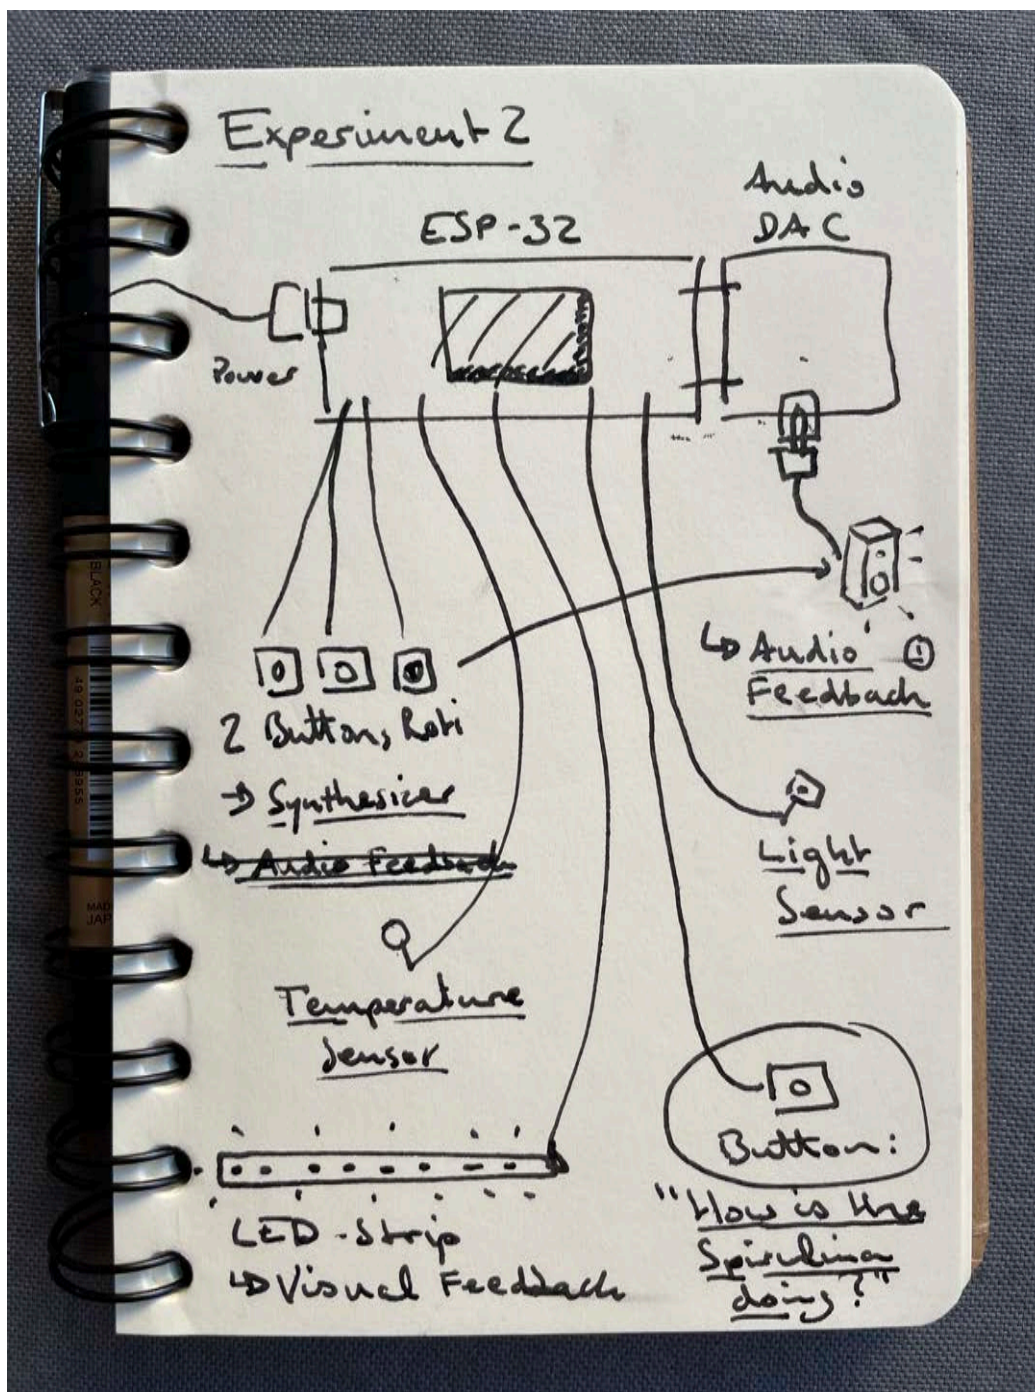 Experiment 2
ESP-32
Audio
DAC
Power
2 Buttons, Poti
→ Synthesizer
↳ Audio Feedback
↳ Audio
Feedback
Light
Sensor
Temperature
Sensor
Button:
"How is the
Spirulina
doing?"
LED-Strip
↳ Visual Feedback
BLACK
MADE
JAP